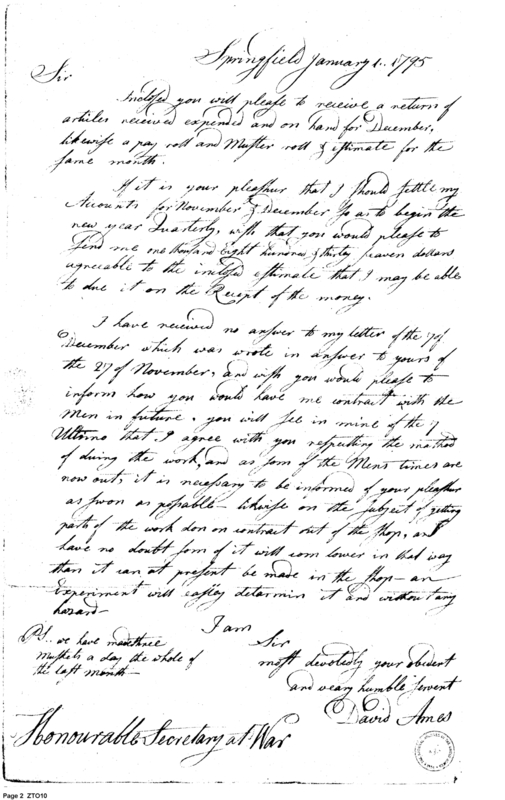 Springfield January 1.. 1795
Sir
Inclosed you will please to receive a return of
articles received expended and on hand for December,
likewise a pay roll and Muster roll & estimate for the
same month.
If it is your pleashur that I should settle my
Accounts for November & December so as to begin the
new year Quarterly, wish that you would please to
send me one thousand Eight hundred & thirty seaven dollars
agreeable to the inclosed estimate that I may be able
to due it on the Recept of the money.
I have received no answer to my letter of the 7 of
December which was wrote in answer to yours of
the 27 of November, and wish you would please to
inform how you would have me contract with the
Men in future. you will see in mine of the 7
Ultimo that I agree with you respecting the mathod
of duing the work, and as som of the Mens times are
now out, it is necessary to be informed of your pleashur
as swon as possable - likwise on the subject of getting
parts of the work don on contract out of the shop, and
have no doubt som of it will com lower in that way
than it can at present be made in the shop - an
Experiment will easley determin it and without any
hazard -
I am
Sir
most devotedly your obedient
and veary humble servent
David Ames
PS.. we have made three
Muskets a day the whole of
the last month -
Honourable Secretary at War
Page 2 ZTO10